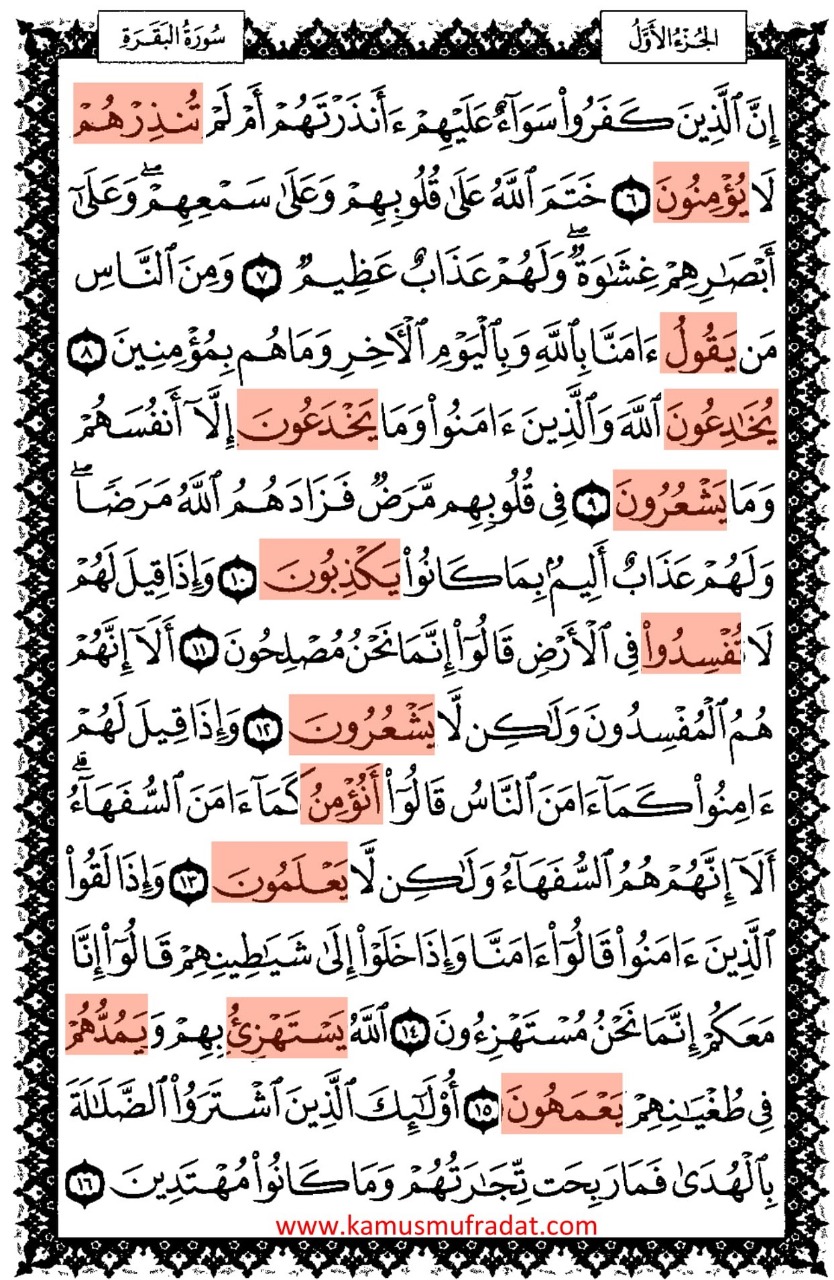 الجُزْءُ الأَوَّلُ
سُورَةُ البَقَرَةِ
إِنَّ ٱلَّذِينَ كَفَرُوا۟ سَوَآءٌ عَلَيْهِمْ ءَأَنذَرْتَهُمْ أَمْ لَمْ تُنذِرْهُمْ
لَا يُؤْمِنُونَ ٦ خَتَمَ ٱللَّهُ عَلَىٰ قُلُوبِهِمْ وَعَلَىٰ سَمْعِهِمْ ۖ وَعَلَىٰٓ
أَبْصَٰرِهِمْ غِشَٰوَةٌ ۖ وَلَهُمْ عَذَابٌ عَظِيمٌ ٧ وَمِنَ ٱلنَّاسِ
مَن يَقُولُ ءَامَنَّا بِٱللَّهِ وَبِٱلْيَوْمِ ٱلْءَاخِرِ وَمَا هُم بِمُؤْمِنِينَ ٨
يُخَٰدِعُونَ ٱللَّهَ وَٱلَّذِينَ ءَامَنُوا۟ وَمَا يَخْدَعُونَ إِلَّآ أَنفُسَهُمْ
وَمَا يَشْعُرُونَ ٩ فِى قُلُوبِهِم مَّرَضٌ فَزَادَهُمُ ٱللَّهُ مَرَضًا ۖ
وَلَهُمْ عَذَابٌ أَلِيمٌۢ بِمَا كَانُوا۟ يَكْذِبُونَ ١٠ وَإِذَا قِيلَ لَهُمْ
لَا تُفْسِدُوا۟ فِى ٱلْأَرْضِ قَالُوٓا۟ إِنَّمَا نَحْنُ مُصْلِحُونَ ١١ أَلَآ إِنَّهُمْ
هُمُ ٱلْمُفْسِدُونَ وَلَٰكِن لَّا يَشْعُرُونَ ١٢ وَإِذَا قِيلَ لَهُمْ
ءَامِنُوا۟ كَمَآ ءَامَنَ ٱلنَّاسُ قَالُوٓا۟ أَنُؤْمِنُ كَمَآ ءَامَنَ ٱلسُّفَهَآءُ ۗ
أَلَآ إِنَّهُمْ هُمُ ٱلسُّفَهَآءُ وَلَٰكِن لَّا يَعْلَمُونَ ١٣ وَإِذَا لَقُوا۟
ٱلَّذِينَ ءَامَنُوا۟ قَالُوٓا۟ ءَامَنَّا وَإِذَا خَلَوْا۟ إِلَىٰ شَيَٰطِينِهِمْ قَالُوٓا۟ إِنَّا
مَعَكُمْ إِنَّمَا نَحْنُ مُسْتَهْزِءُونَ ١٤ ٱللَّهُ يَسْتَهْزِئُ بِهِمْ وَيَمُدُّهُمْ
فِى طُغْيَٰنِهِمْ يَعْمَهُونَ ١٥ أُو۟لَٰٓئِكَ ٱلَّذِينَ ٱشْتَرَوُا۟ ٱلضَّلَٰلَةَ
بِٱلْهُدَىٰ فَمَا رَبِحَت تِّجَٰرَتُهُمْ وَمَا كَانُوا۟ مُهْتَدِينَ ١٦
www.kamusmufradat.com